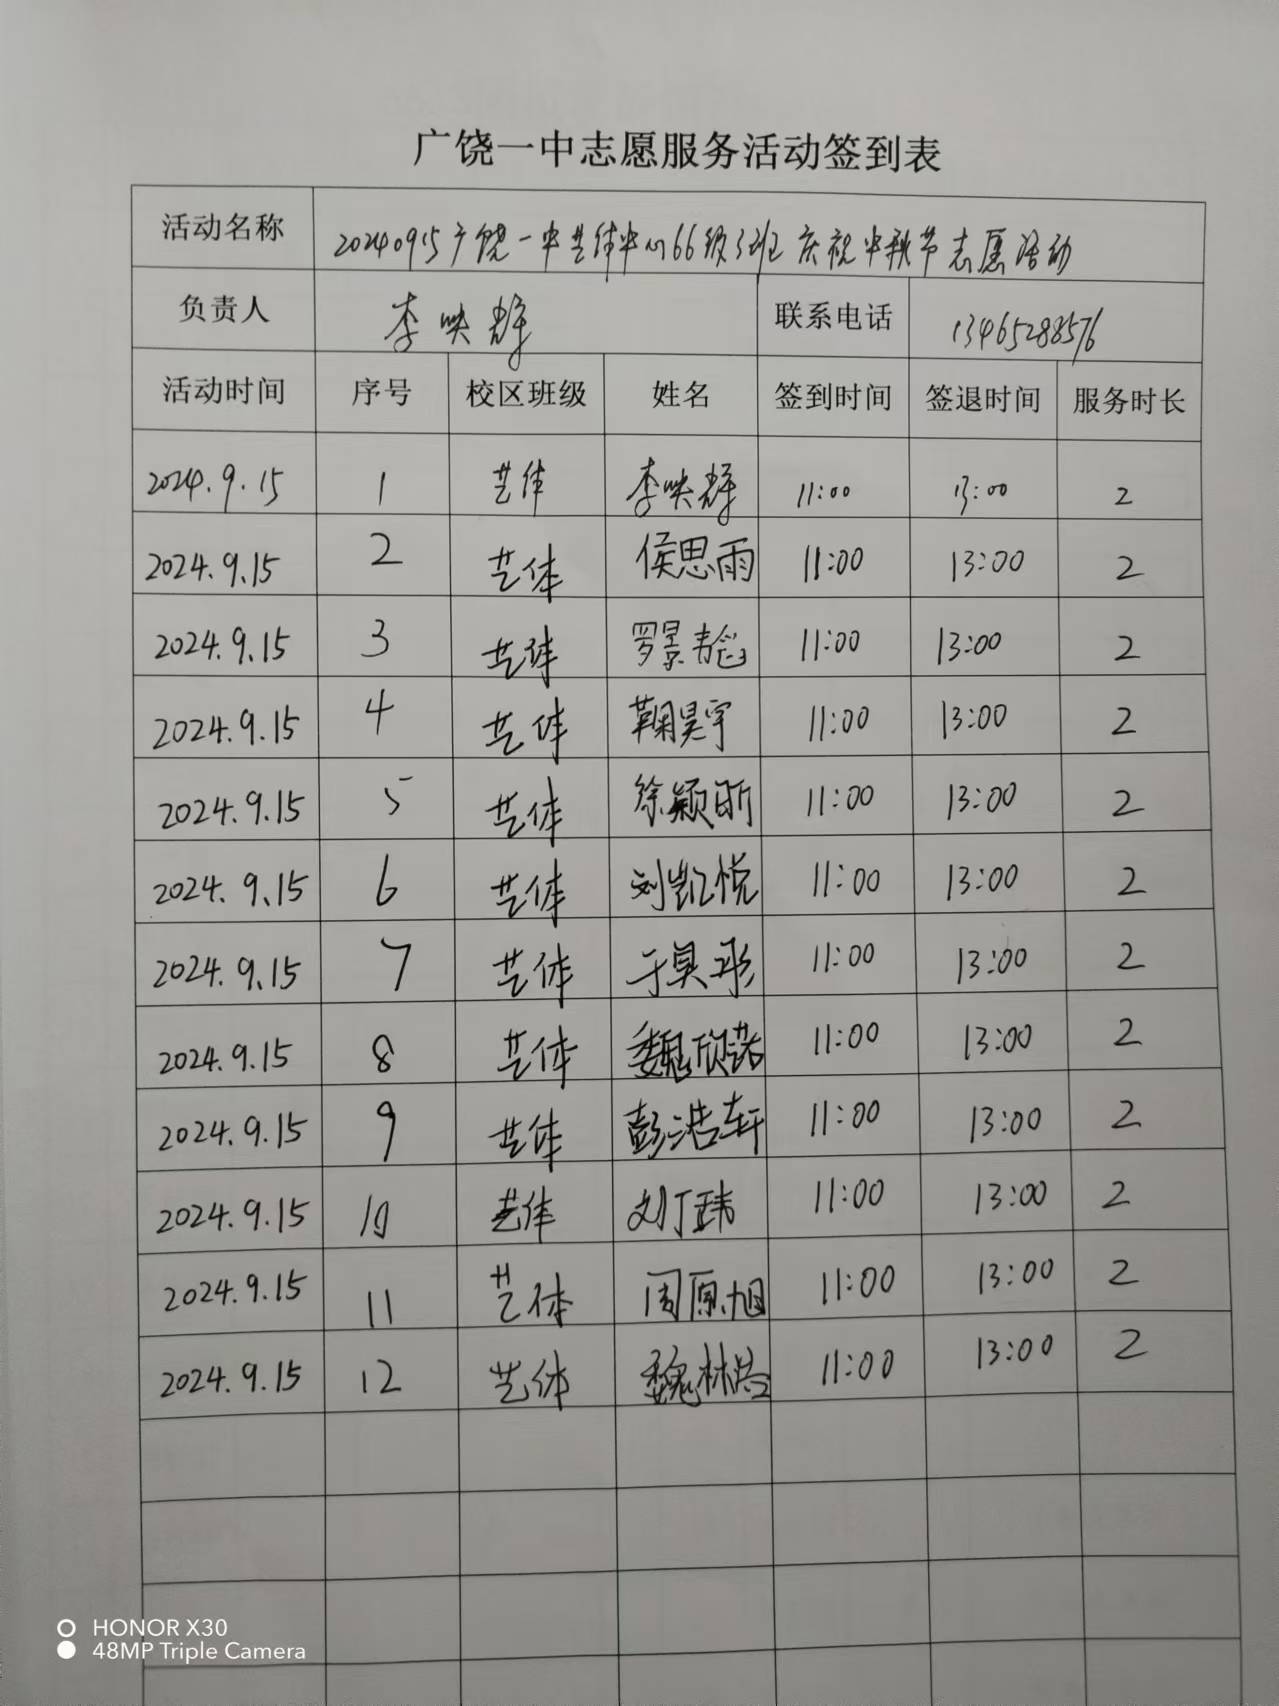 广饶一中志愿服务活动签到表
活动名称 20240915广饶一中艺体中心66级3班庆祝中秋节志愿活动
负责人 李映辉 联系电话 13465288576
活动时间 序号 校区班级 姓名 签到时间 签退时间 服务时长
2024.9.15 1 艺体 李映辉 11:00 13:00 2
2024.9.15 2 艺体 侯思雨 11:00 13:00 2
2024.9.15 3 艺体 罗景 11:00 13:00 2
2024.9.15 4 艺体 鞠昊宇 11:00 13:00 2
2024.9.15 5 艺体 徐颖昕 11:00 13:00 2
2024.9.15 6 艺体 刘凯悦 11:00 13:00 2
2024.9.15 7 艺体 于昊彤 11:00 13:00 2
2024.9.15 8 艺体 魏欣诺 11:00 13:00 2
2024.9.15 9 艺体 彭浩轩 11:00 13:00 2
2024.9.15 10 艺体 刘丁玮 11:00 13:00 2
2024.9.15 11 艺体 周原旭 11:00 13:00 2
2024.9.15 12 艺体 魏林 11:00 13:00 2
HONOR X30
48MP Triple Camera